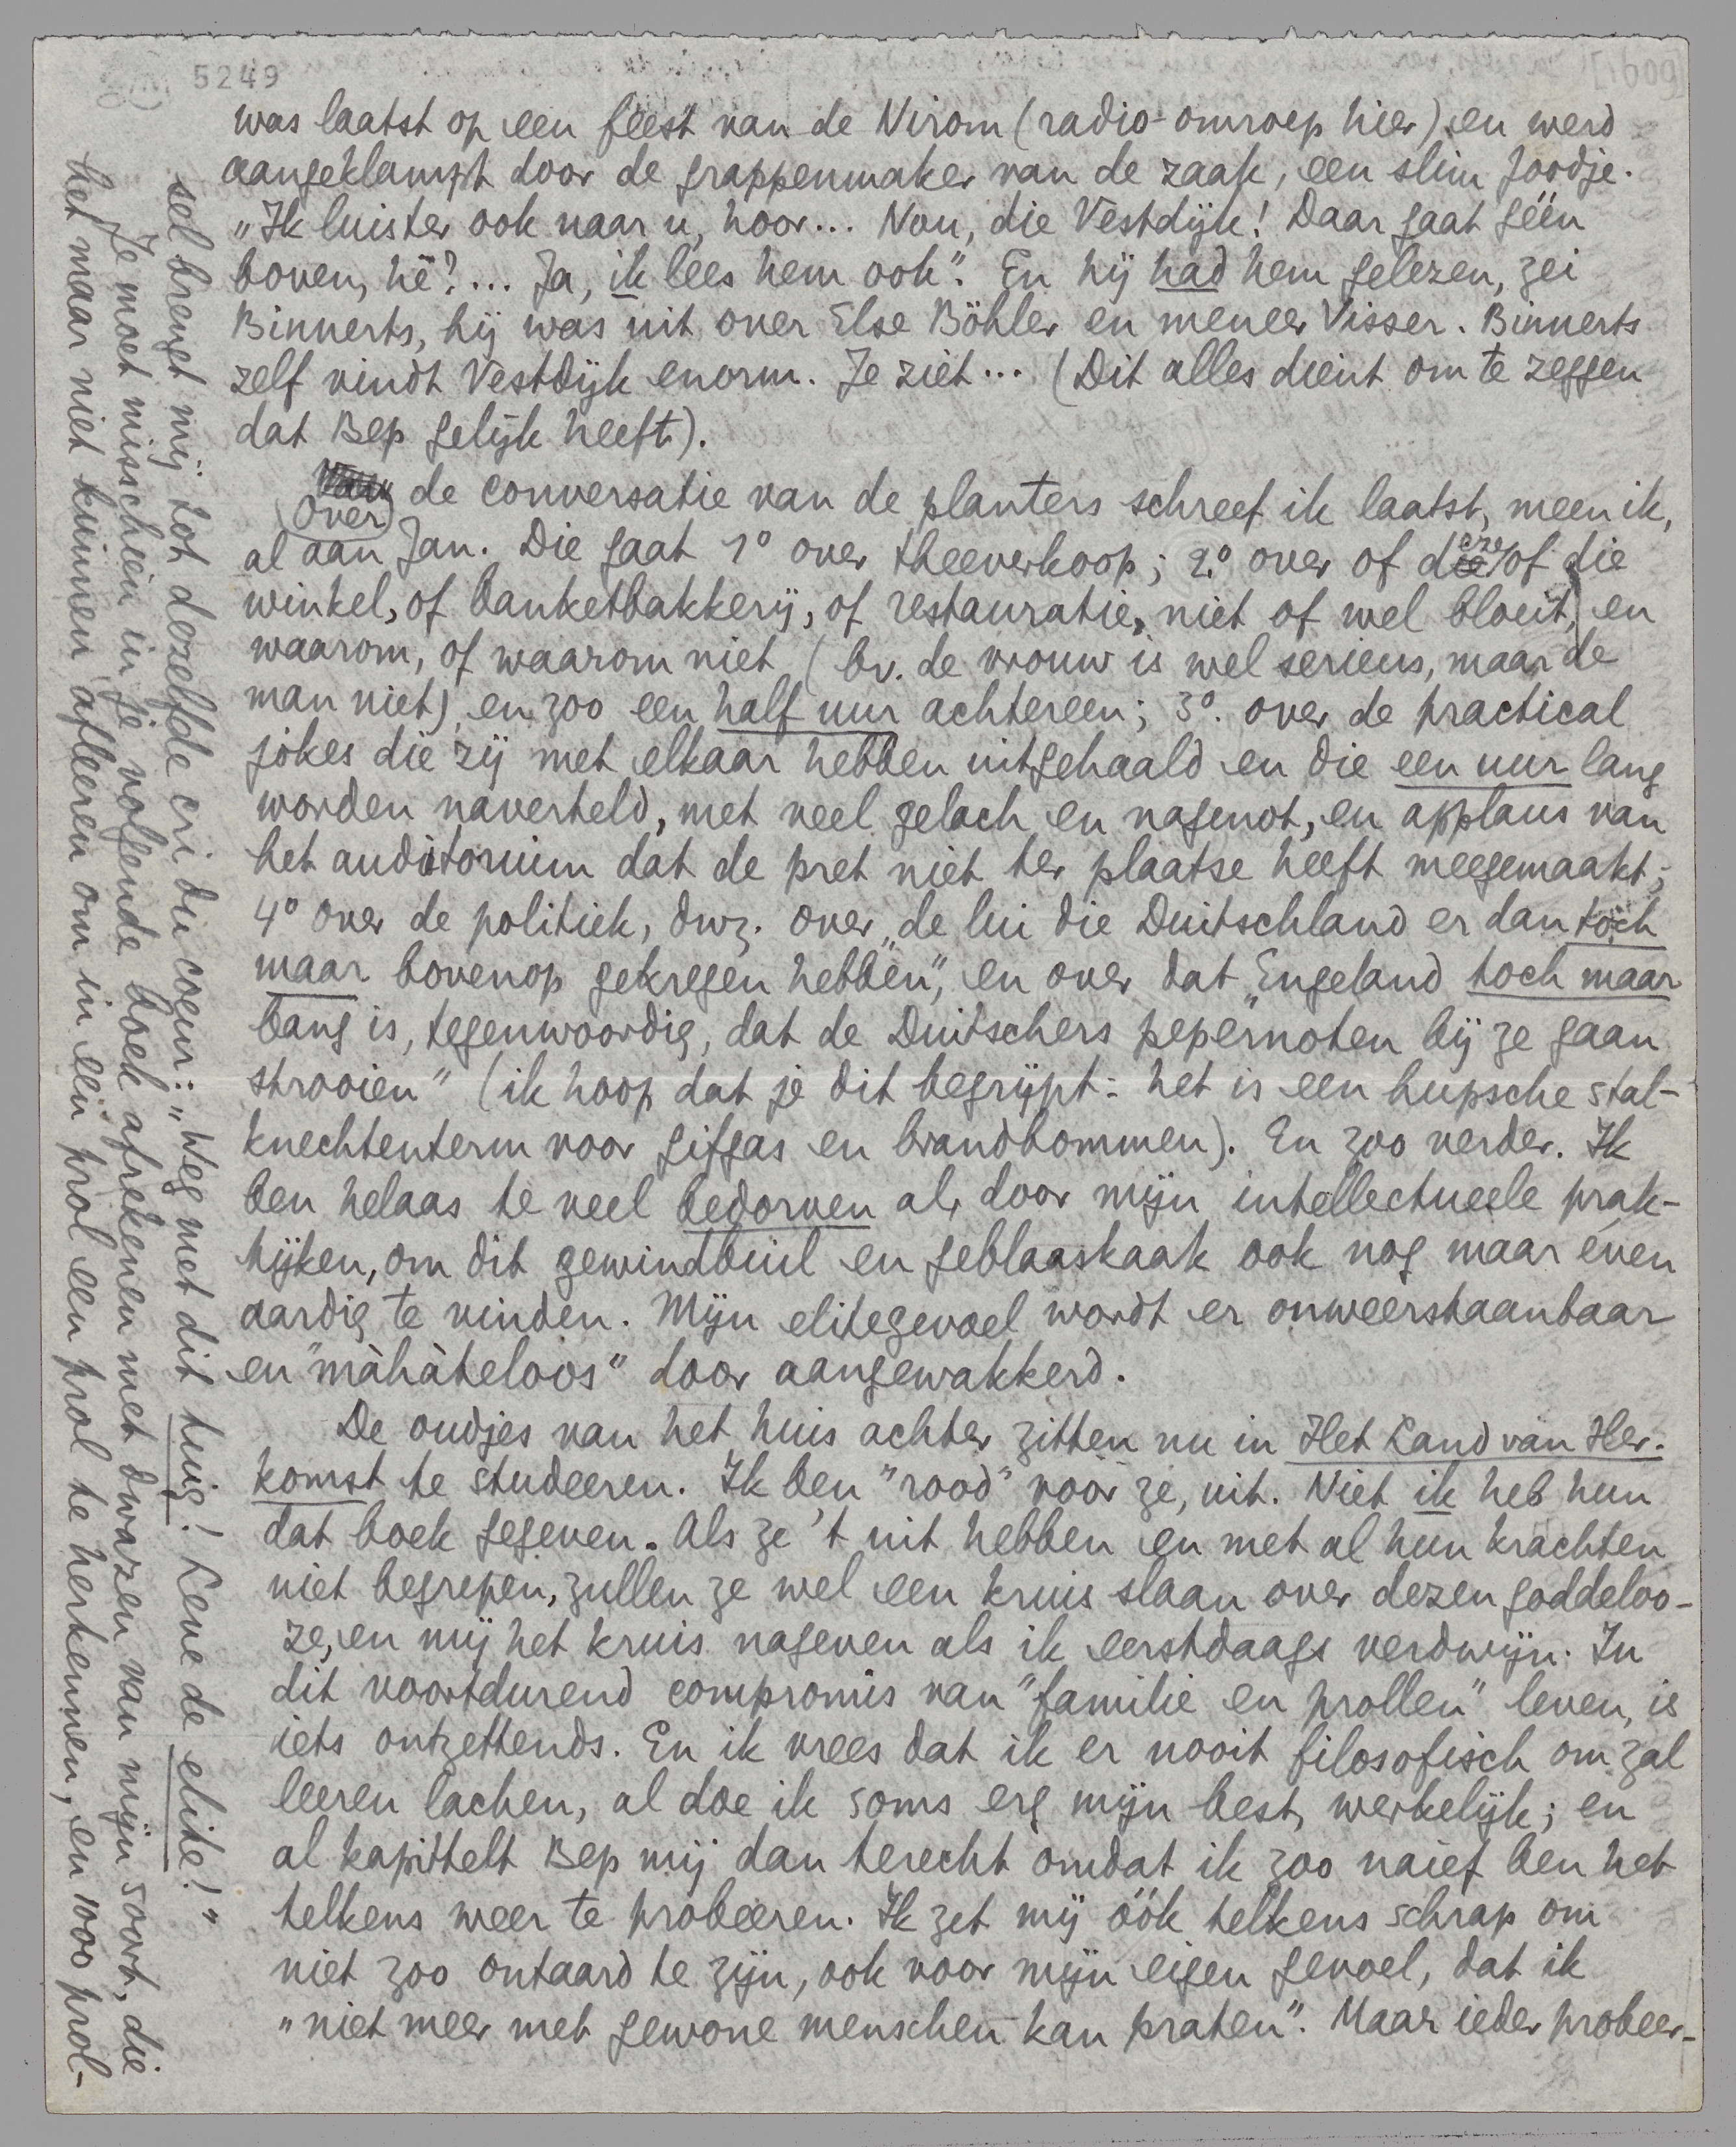 5249
was laatst op een feest van de Nirom (radio-omroep hier) en werd
aangeklampt door de grappenmaker van de zaak, een slim Joodje.
„Ik luister ook naar u, hoor... Nou, die Vestdijk! Daar gaat géén
boven, hè?... Ja, ik lees hem ook”. En hij had hem gelezen, zei
Binnerts, hij was uit over Else Böhler en meneer Visser. Binnerts
zelf vindt Vestdijk enorm. Je ziet... (Dit alles dient om te zeggen
dat Bep gelijk heeft).
Over de conversatie van de planters schreef ik laatst, meen ik,
al aan Jan. Die gaat 1° over theeverkoop; 2° over of deze of die
winkel, of banketbakkerij, of restauratie, niet of wel bloeit, en
waarom, of waarom niet (bv. de vrouw is wel serieus, maar de
man niet) en zoo een half uur achtereen; 3°. over de practical
jokes die zij met elkaar hebben uitgehaald en die een uur lang
worden naverteld, met veel gelach en nagenot, en applaus van
het auditorium dat de pret niet ter plaatse heeft meegemaakt;
4° over de politiek, dwz. over „de lui die Duitschland er dan toch
maar bovenop gekregen hebben”, en over dat „Engeland toch maar
bang is, tegenwoordig, dat de Duitschers pepernoten bij ze gaan
strooien” (ik hoop dat je dit begrijpt: het is een hupsche stal-
knechtenterm voor gifgas en brandbommen). En zoo verder. Ik
ben helaas te veel bedorven al, door mijn intellectueele prak-
tijken, om dit gewindbuil en geblaaskaak ook nog maar even
aardig te vinden. Mijn elitegevoel wordt er onweerstaanbaar
en "màhàteloos" door aangewakkerd.
De oudjes van het huis achter zitten nu in Het Land van Her-
komst te studeeren. Ik ben "rood" voor ze, uit. Niet ik heb hun
dat boek gegeven. Als ze 't uit hebben en met al hun krachten
niet begrepen, zullen ze wel een kruis slaan over dezen goddeloo-
ze, en mij het kruis nageven als ik eerstdaags verdwijn. In
dit voortdurend compromis van "familie en prollen" leven, is
iets ontzettends. En ik vrees dat ik er nooit filosofisch om zal
leeren lachen, al doe ik soms erg mijn best, werkelijk; en
al kapittelt Bep mij dan terecht omdat ik zoo naïef ben het
telkens weer te probeeren. Ik zet mij óók telkens schrap om
niet zoo ontaard te zijn, ook voor mijn eigen gevoel, dat ik
„niet meer met gewone menschen kan praten”. Maar ieder probeer-
sel brengt mij tot dezelfde cri du coeur: „Weg met dit tuig! Leve de elite!”
Je moet misschien in je volgende boek afrekenen met dwazen van mijn soort, die
het maar niet kunnen afleeren om in een prol een prol te herkennen, en 1000 prol-